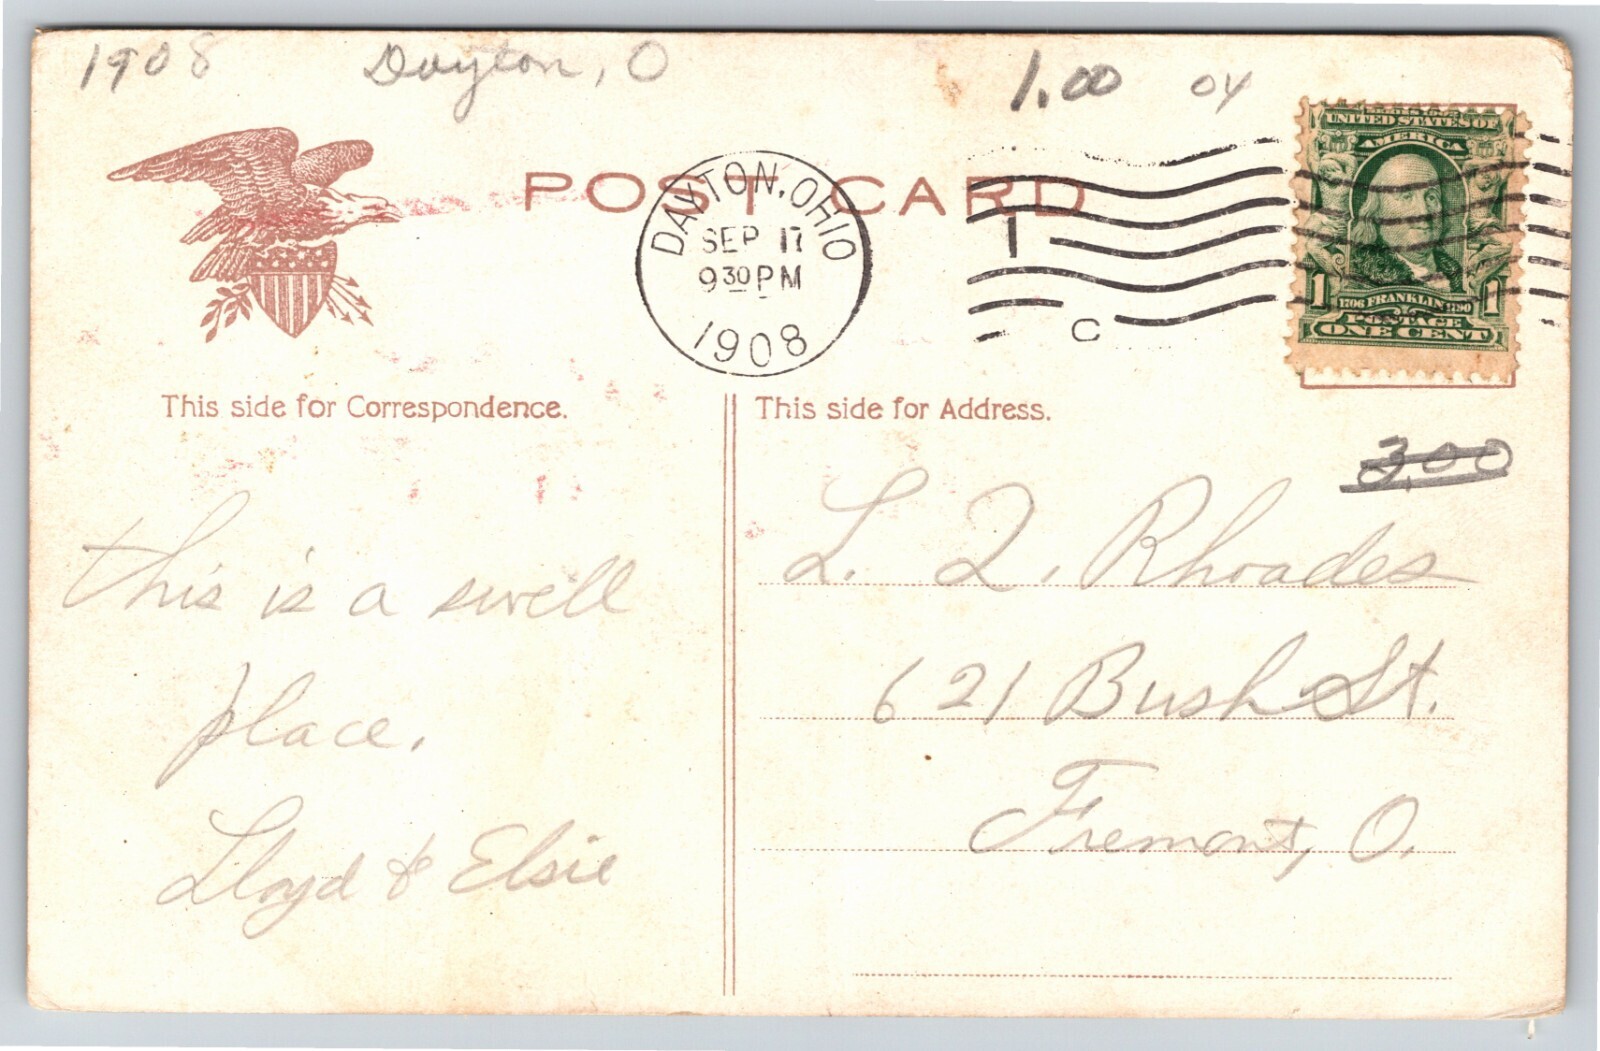 1908 Dayton, O 1.00 04
POST CARD
DAYTON, OHIO
SEP 17
9 30 PM
1908
1
C
SERIES 1902
UNITED STATES OF
AMERICA
1 1706 FRANKLIN 1790 1
POSTAGE
ONE CENT
This side for Correspondence.
This side for Address.
3.00
this is a swell
place.
Lloyd & Elsie
L. Q. Rhoades
621 Bush St.
Fremont, O.